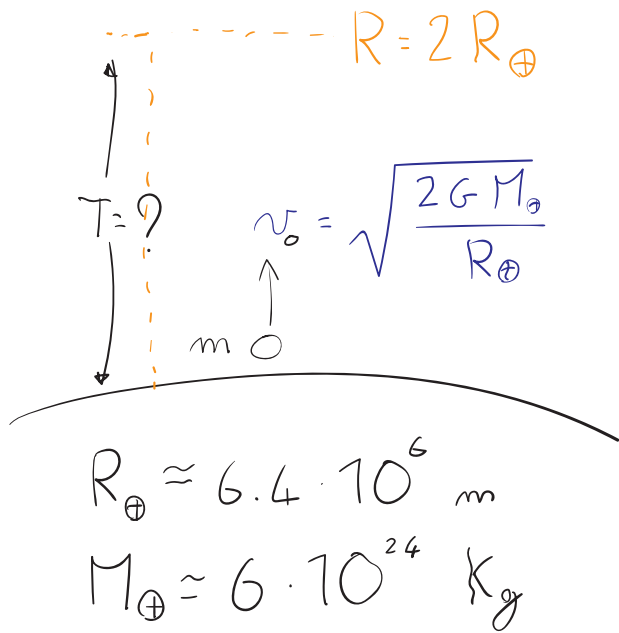 R = 2 R⊕
T = ?
v₀ = √(2 G M⊕ / R⊕)
m
R⊕ ≈ 6.4 · 10⁶ m
M⊕ ≈ 6 · 10²⁴ Kg